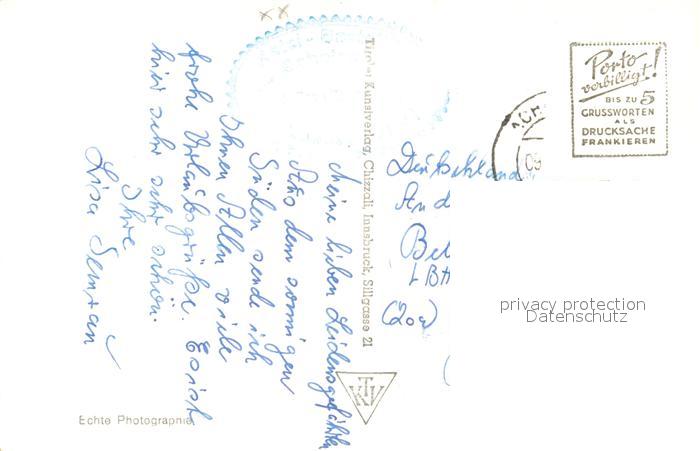 Meine lieben Leidensgefährten
Aus dem sonnigen
Süden sende ich
Ihnen Allen viele
frohe Urlaubsgrüße. Es ist
hier sehr sehr schön.
Ihre
Lisa
Tiroler Kunstverlag, Chizzali, Innsbruck, Sillgasse 21
TKV
Echte Photographie
Porto
verbilligt!
BIS ZU 5
GRUSSWORTEN
ALS
DRUCKSACHE
FRANKIEREN
Deutschland
And
LBA
(20a)
privacy protection
Datenschutz